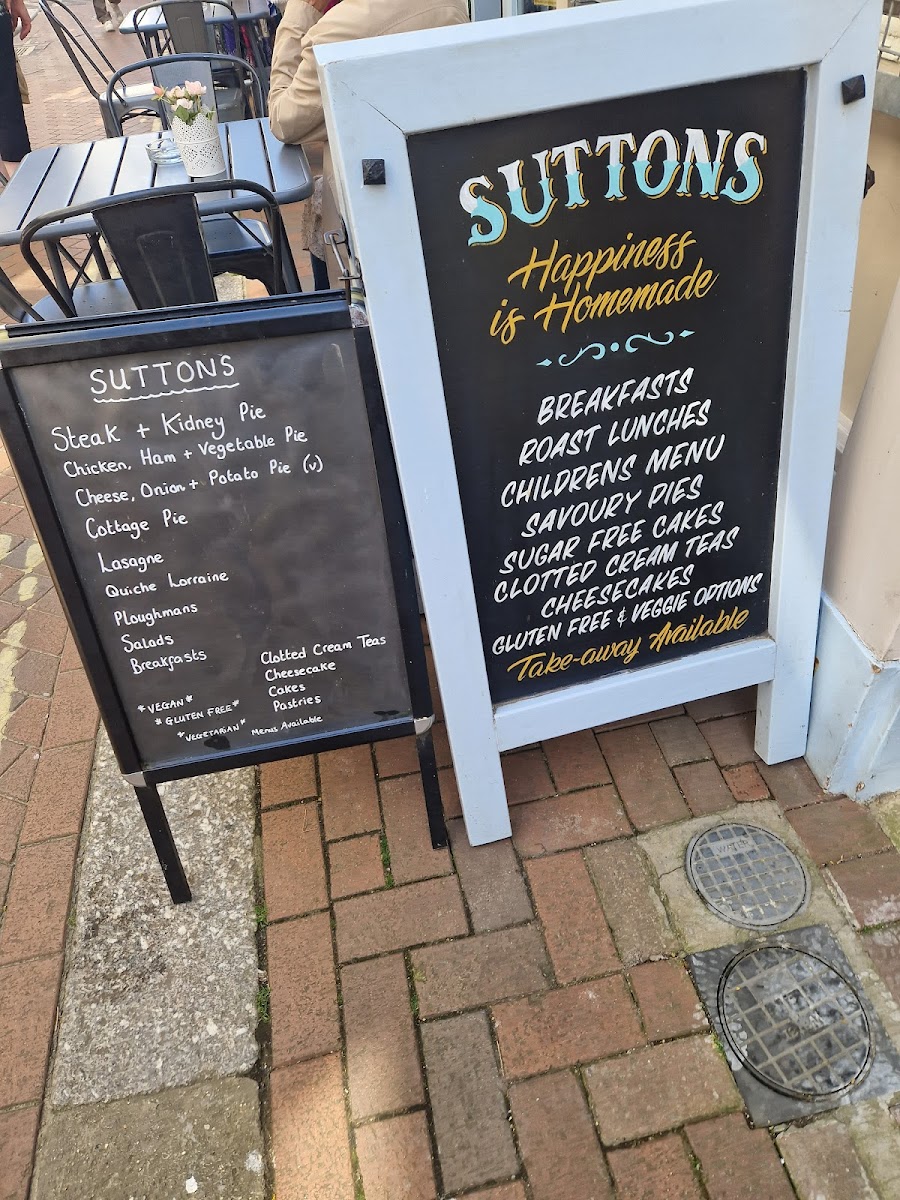 SUTTONS
Steak + Kidney Pie
Chicken, Ham + Vegetable Pie
Cheese, Onion + Potato Pie (v)
Cottage Pie
Lasagne
Quiche Lorraine
Ploughmans
Salads
Breakfasts
Clotted Cream Teas
Cheesecake
Cakes
Pastries
*VEGAN*
*GLUTEN FREE*
*VEGETARIAN* Menus Available
SUTTONS
Happiness
is Homemade
BREAKFASTS
ROAST LUNCHES
CHILDRENS MENU
SAVOURY PIES
SUGAR FREE CAKES
CLOTTED CREAM TEAS
CHEESECAKES
GLUTEN FREE & VEGGIE OPTIONS
Take-away Available
WATER